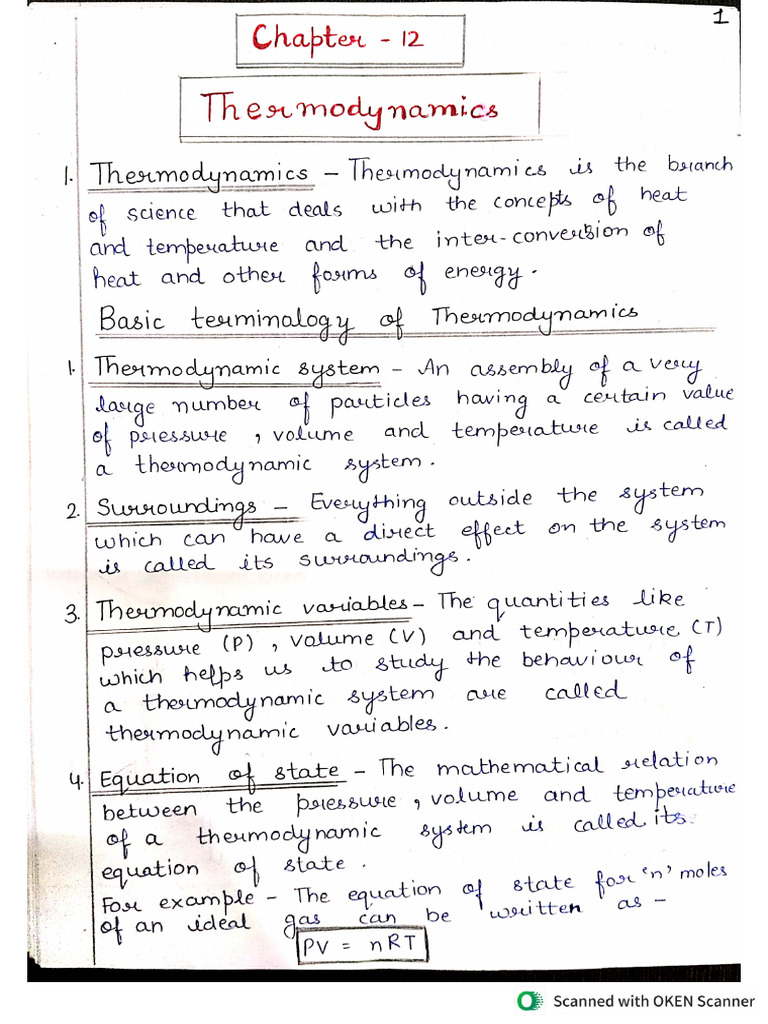 1
Chapter - 12
Thermodynamics
1. Thermodynamics - Thermodynamics is the branch
of science that deals with the concepts of heat
and temperature and the inter-conversion of
heat and other forms of energy.
Basic terminalogy of Thermodynamics
1. Thermodynamic system - An assembly of a very
large number of particles having a certain value
of pressure, volume and temperature is called
a thermodynamic system.
2. Surroundings - Everything outside the system
which can have a direct effect on the system
is called its surroundings.
3. Thermodynamic variables - The quantities like
pressure (P), volume (V) and temperature (T)
which helps us to study the behaviour of
a thermodynamic system are called
thermodynamic variables.
4. Equation of state - The mathematical relation
between the pressure, volume and temperature
of a thermodynamic system is called its
equation of state.
For example - The equation of state for 'n' moles
of an ideal gas can be written as -
PV = nRT
Scanned with OKEN Scanner